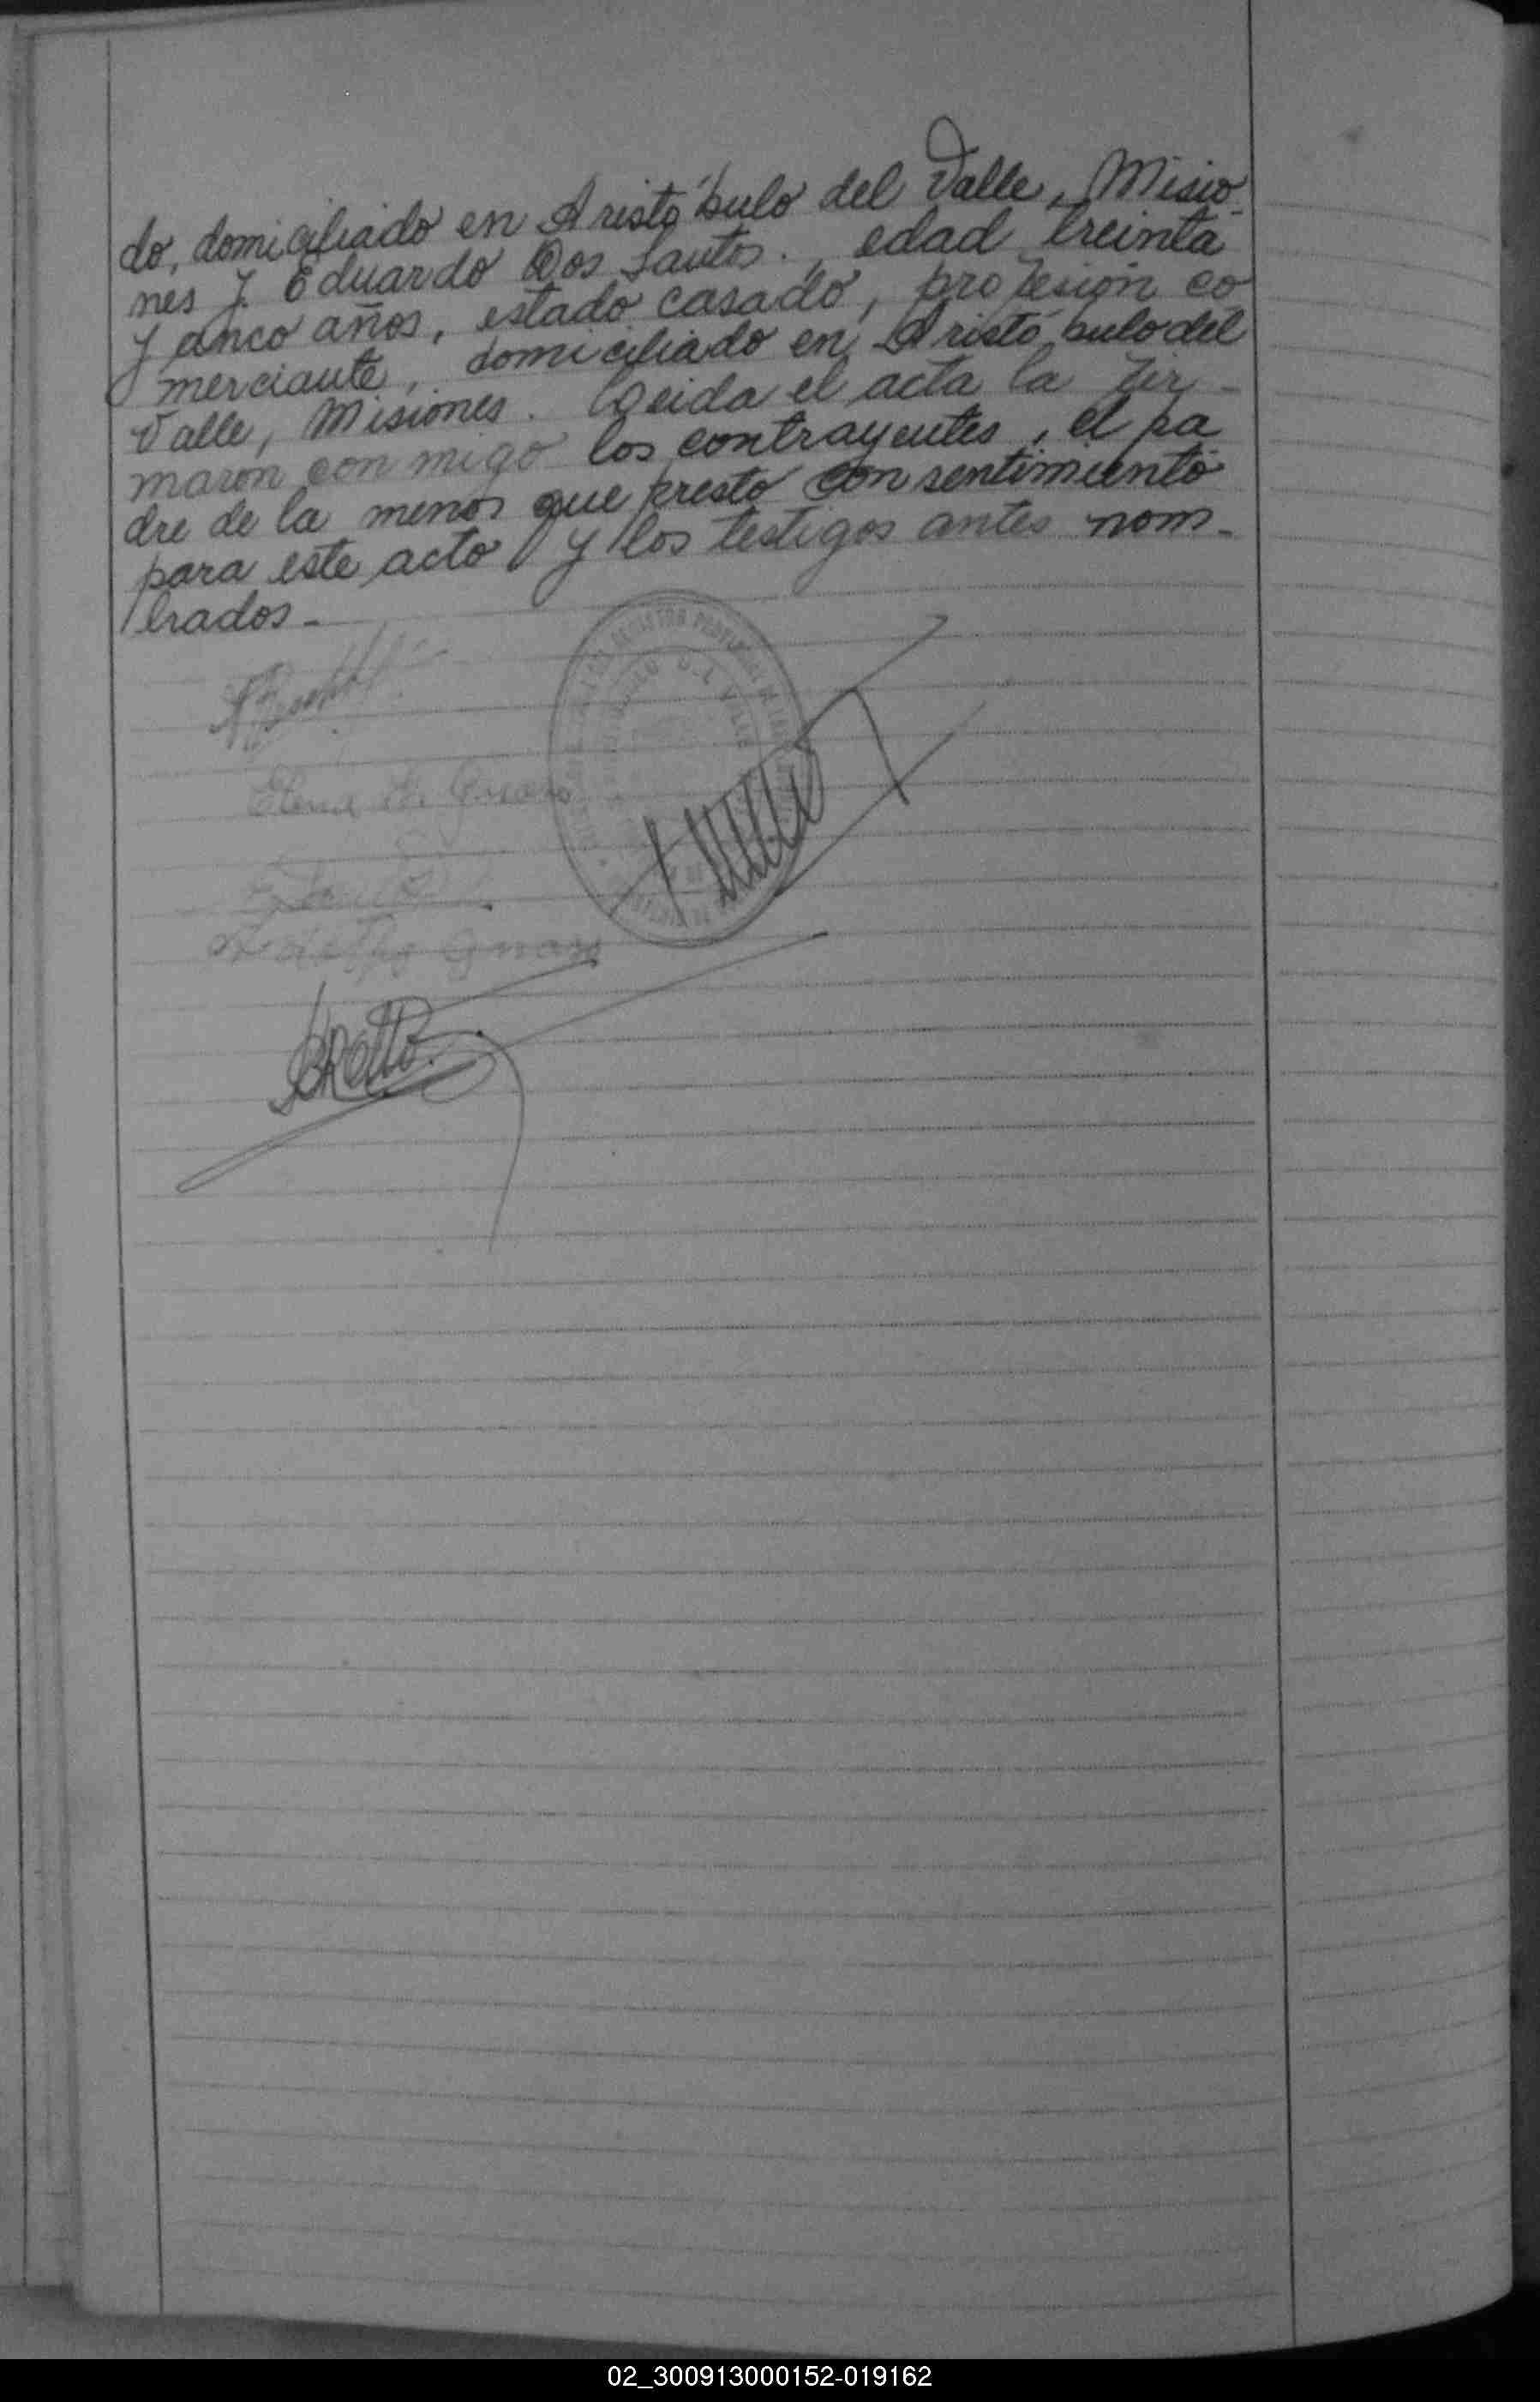 do, domiciliado en Aristóbulo del Valle, Misio-
nes y Eduardo Dos Santos., edad treinta
y cinco años, estado casado, profesión co
merciante, domiciliado en Aristóbulo del
Valle, Misiones. Leida el acta la fir-
maron con migo los contrayentes, el pa
dre de la menor que presto consentimiento
para este acto y los testigos antes nom-
brados-
Elena
02_300913000152-019162